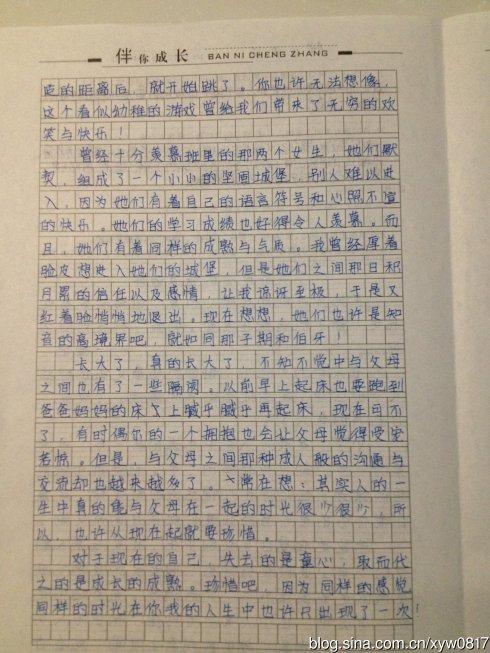 伴你成长 BAN NI CHENG ZHANG
适的距离后，就开始跳了。你也许无法想像，
这个看似幼稚的游戏曾给我们带来了无穷的欢
笑与快乐！
曾经十分羡慕班里的那两个女生，她们默
契，组成了一个小小的坚固城堡，别人难以进
入，因为她们有着自己的语言符号和心照不宣
的快乐。她们的学习成绩也好得令人羡慕。而
且，她们有着同样的成熟与气质。我曾经厚着
脸皮想进入她们的城堡，但是她们之间那日积
月累的信任以及感情，让我惊讶至极，于是又
红着脸悄悄地退出。现在想想，她们也许是知
音的高境界吧，就如同那子期和伯牙！
长大了，真的长大了，不知不觉中与父母
之间也有了一些隔阂。以前早上起床也要跑到
爸爸妈妈的床上腻乎腻乎再起床，现在可不
了，有时偶尔的一个拥抱也会让父母觉得受宠
若惊。但是，与父母之间那种成人般的沟通与
交流却也越来越多了。常在想：其实人的一
生中真的能与父母在一起的时光很少很少，所
以，也许从现在起就要珍惜。
对于现在的自己，失去的是童心，取而代
之的是成长的成熟。珍惜吧，因为同样的感觉
同样的时光在你我的人生中也许只出现了一次！
blog.sina.com.cn/xyw0817